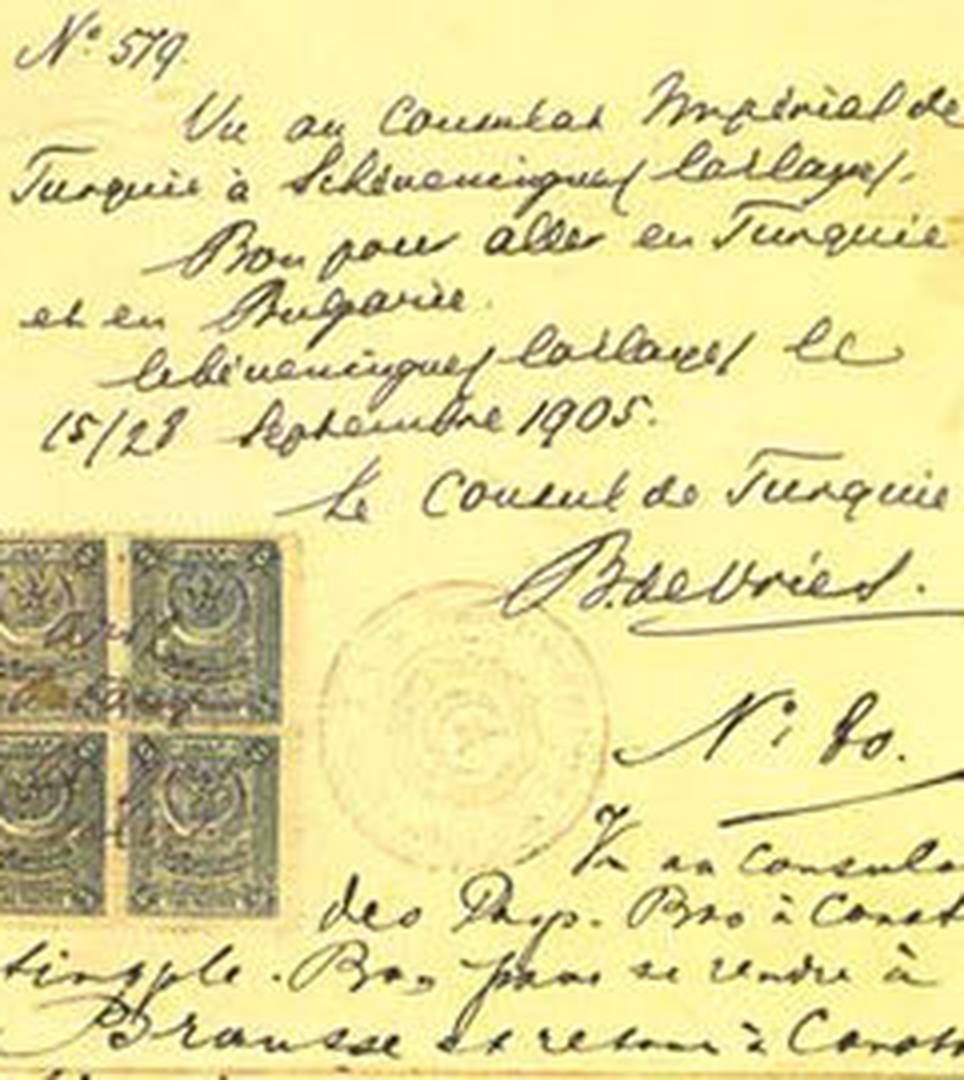 Nº 579.
Vu au Consulat Impérial de
Turquie à Schéveningues (La Haye).
Bon pour aller en Turquie
et en Bulgarie.
Schéveningues (La Haye) le
15/28 Septembre 1905.
Le Consul de Turquie
B. de Vries.
Nº 80.
Vu au Consula
des Pays-Bas à Const
tinople. Bon pour se rendre à
Brousse et retour à Const